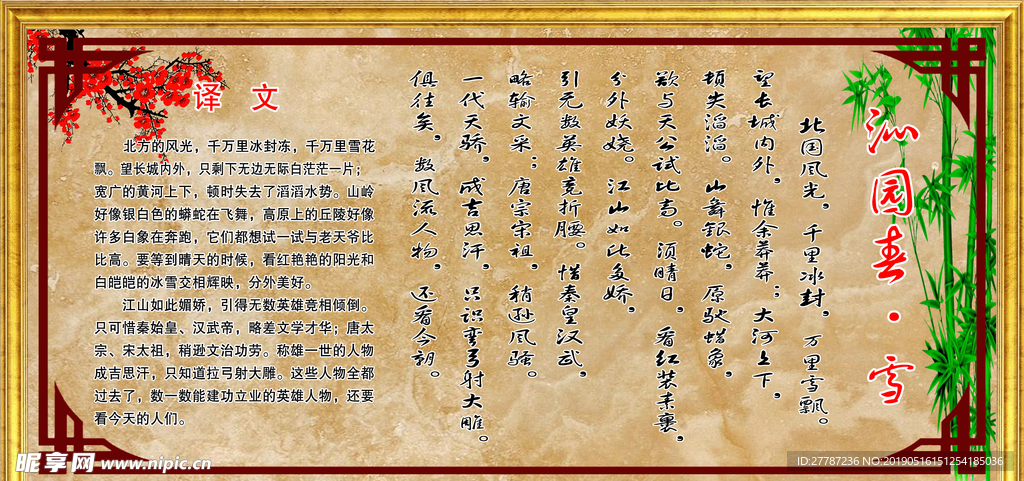 沁园春·雪
北国风光，千里冰封，万里雪飘。
望长城内外，惟余莽莽；大河上下，
顿失滔滔。山舞银蛇，原驰蜡象，
欲与天公试比高。须晴日，看红装素裹，
分外妖娆。江山如此多娇，
引无数英雄竞折腰。惜秦皇汉武，
略输文采；唐宗宋祖，稍逊风骚。
一代天骄，成吉思汗，只识弯弓射大雕。
俱往矣，数风流人物，还看今朝。
译文
北方的风光，千万里冰封冻，千万里雪花
飘。望长城内外，只剩下无边无际白茫茫一片；
宽广的黄河上下，顿时失去了滔滔水势。山岭
好像银白色的蟒蛇在飞舞，高原上的丘陵好像
许多白象在奔跑，它们都想试一试与老天爷比
比高。要等到晴天的时候，看红艳艳的阳光和
白皑皑的冰雪交相辉映，分外美好。
江山如此媚娇，引得无数英雄竞相倾倒。
只可惜秦始皇、汉武帝，略差文学才华；唐太
宗、宋太祖，稍逊文治功劳。称雄一世的人物
成吉思汗，只知道拉弓射大雕。这些人物全都
过去了，数一数能建功立业的英雄人物，还要
看今天的人们。
昵享网 www.nipic.cn
ID:27787236 NO:20190516151254185036